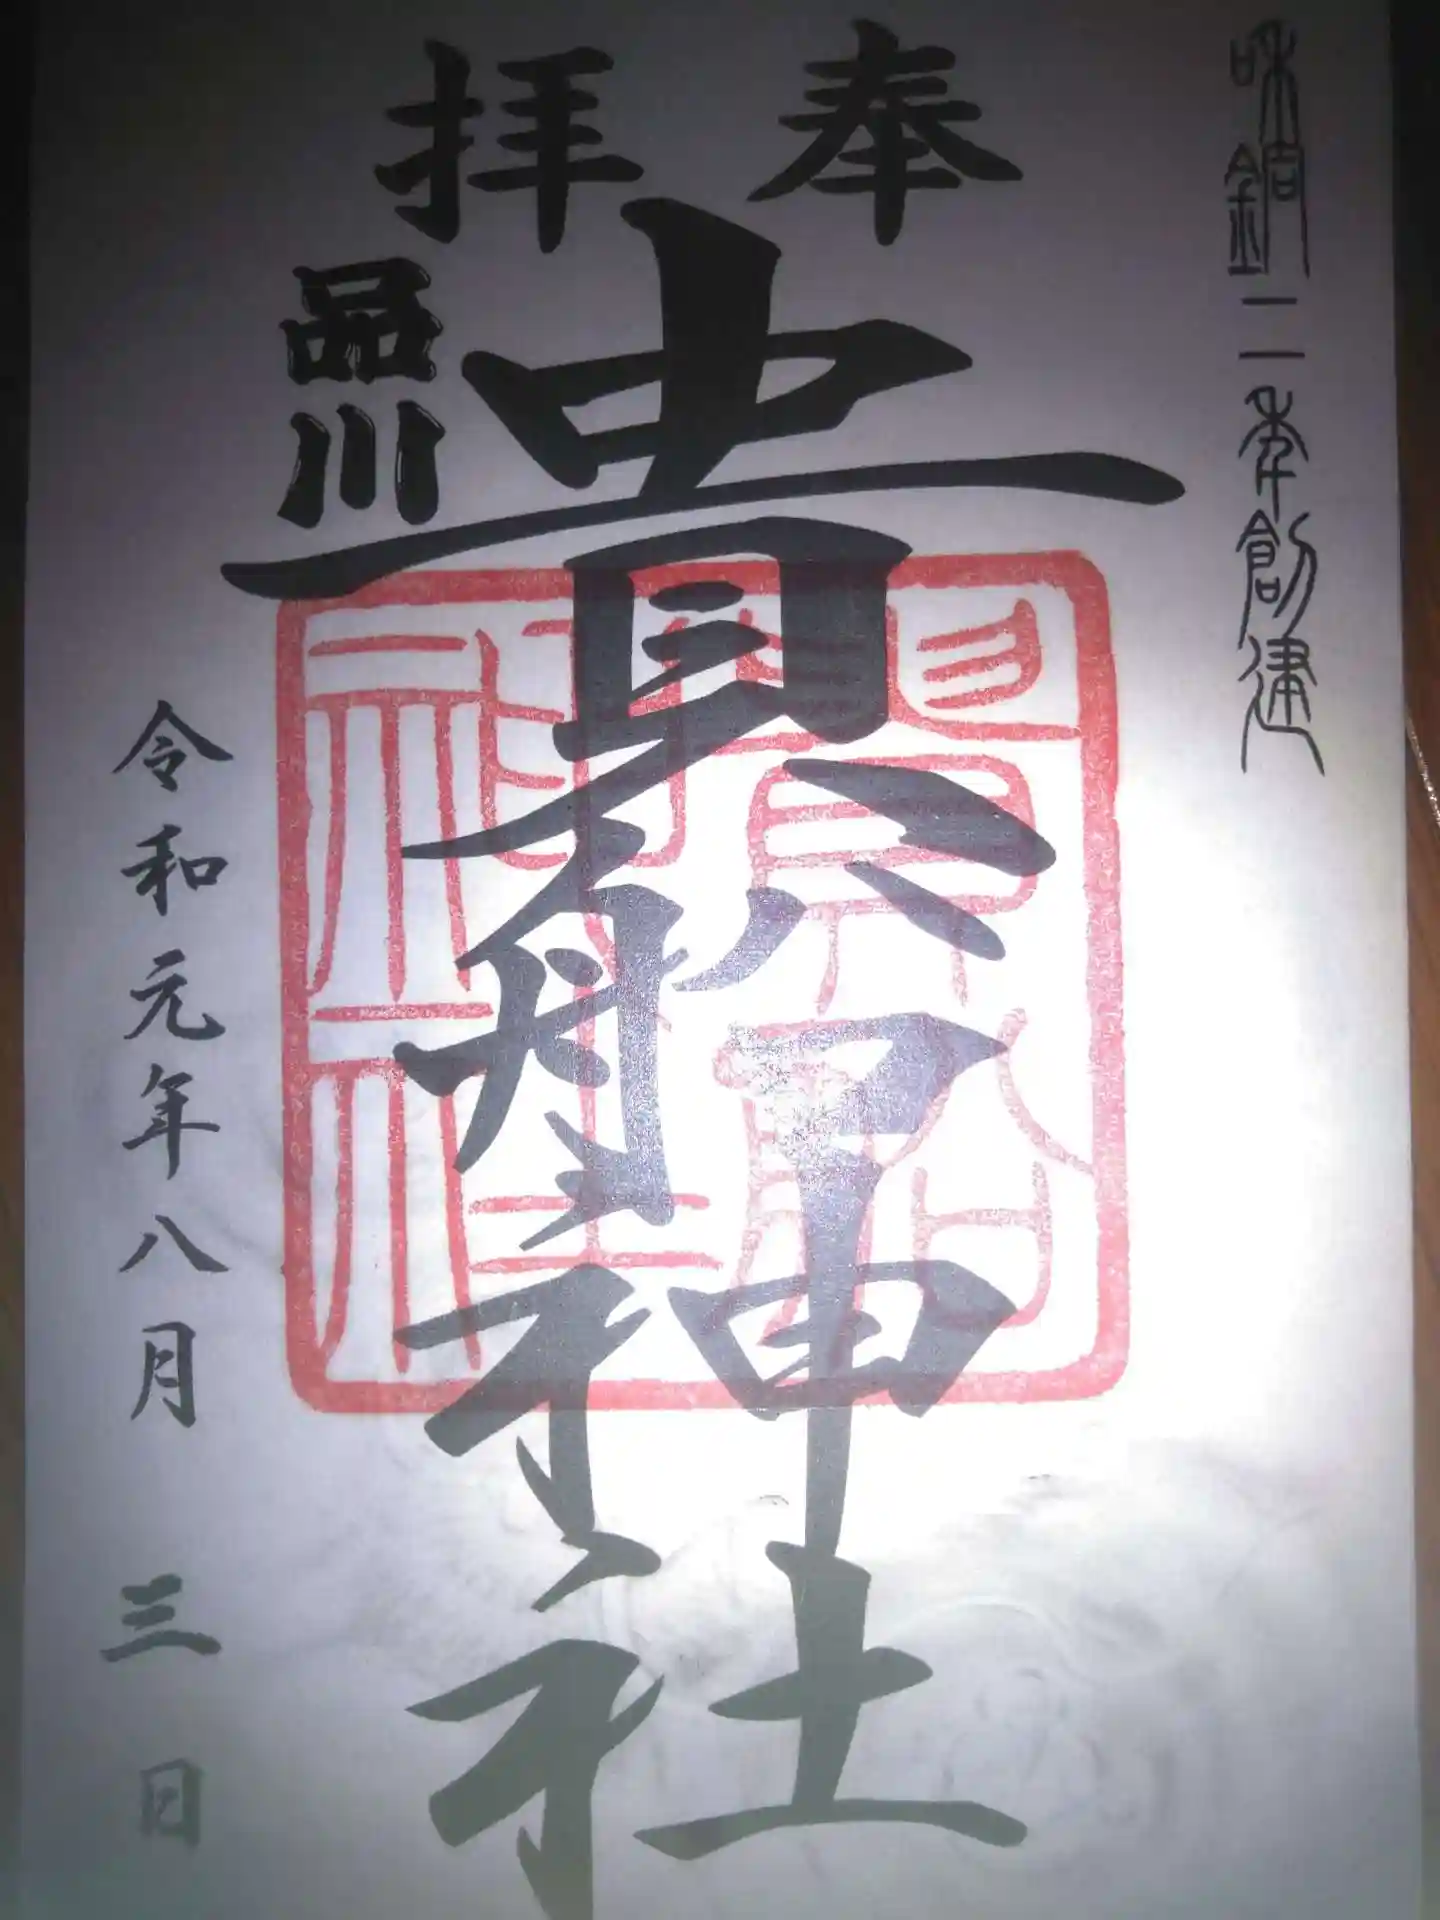 和銅二年創建
奉拝
品川
貴船神社
貴船神社
令和元年八月三日